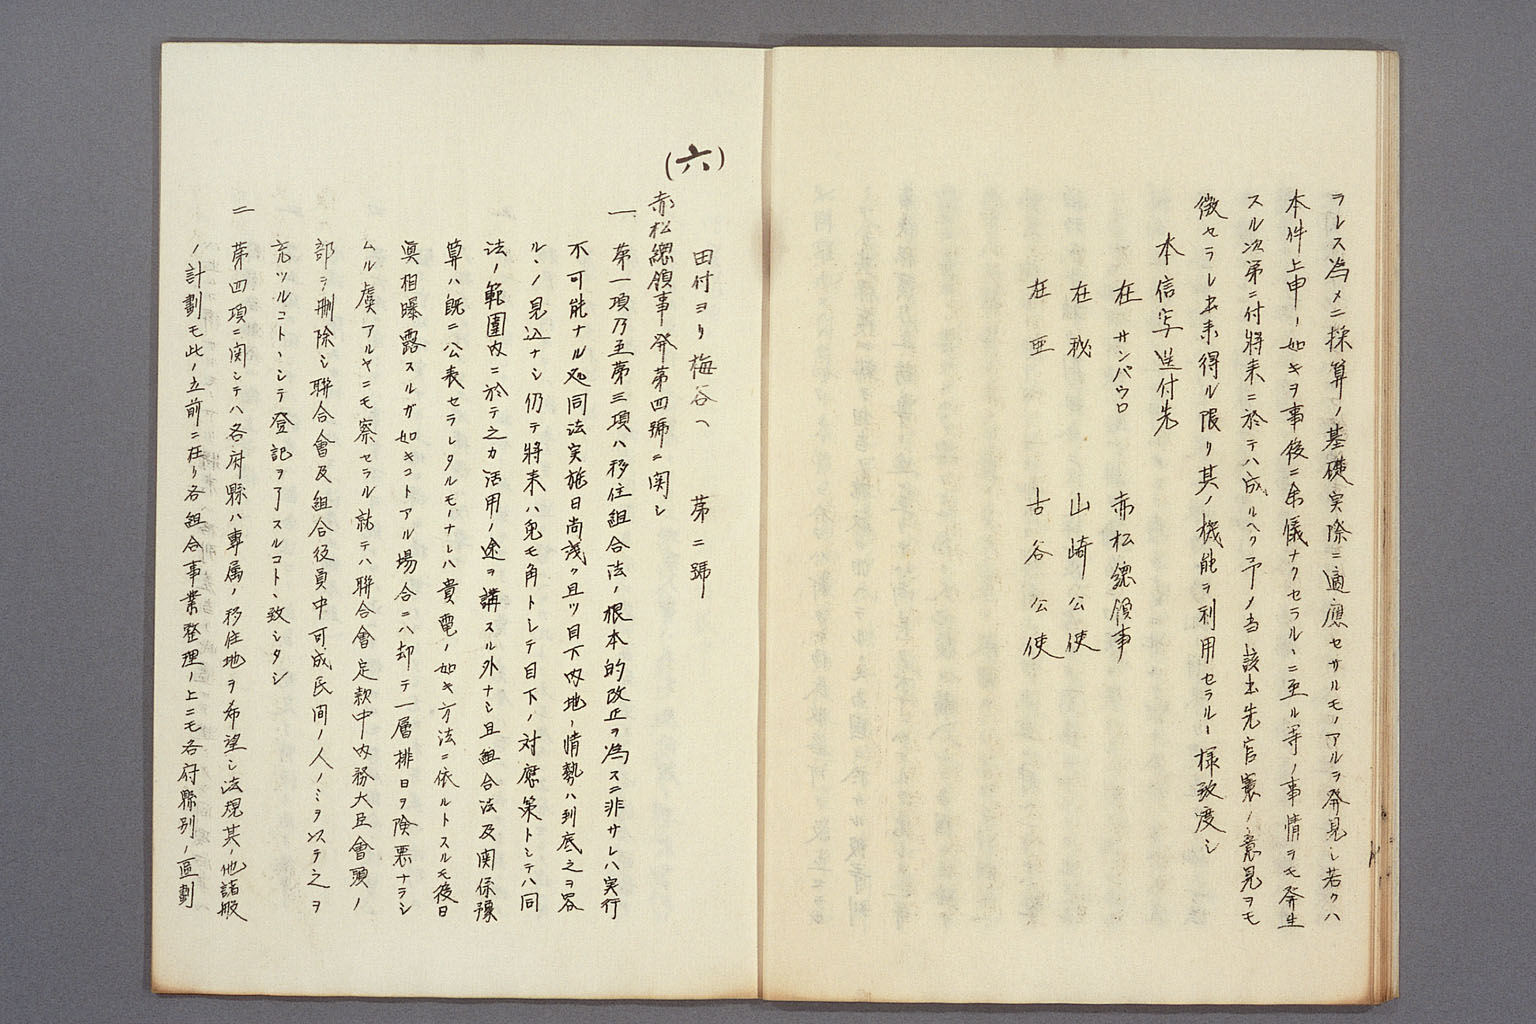 ラレス為メニ採算ノ基礎実際ニ適應セサルモノアルヲ発見シ若クハ
本件上申ノ如キヲ事後ニ余儀ナクセラルヽニ至ル等ノ事情ヲモ発生
スル次第ニ付将来ニ於テハ成ルヘク予メ当該出先官憲ノ意見ヲモ
徴セラレ出来得ル限リ其ノ機能ヲ利用セラルヽ様致度シ
本信写送付先
在サンパウロ 赤松總領事
在秘 山崎公使
在亜 古谷公使
(六)
田付ヨリ梅谷ヘ 第二號
赤松總領事発第四號ニ関シ
一 第一項乃至第三項ハ移住組合法ノ根本的改正ヲ為スニ非サレハ実行
不可能ナル処同法実施日尚浅ク且ツ目下内地ノ情勢ハ到底之ヲ容
ルヽノ見込ナシ仍テ將来ハ兎モ角トシテ目下ノ対應策トシテハ同
法ノ範圍内ニ於テ之カ活用ノ途ヲ講スル外ナシ且組合法及関係豫
算ハ既ニ公表セラレタルモノナレハ貴電ノ如キ方法ニ依ルトスルモ後日
眞相曝露スルガ如キコトアル場合ニハ却テ一層排日ヲ険悪ナラシ
ムル虞アルヤニモ察セラル就テハ聯合會定款中内務大臣會頭ノ
部ヲ刪除シ聯合會及組合役員中可成民间ノ人ノミヲ以テ之ヲ
充ツルコトヽシテ登記ヲ了スルコトヽ致シタシ
二 第四項ニ関シテハ各府縣ハ専属ノ移住地ヲ希望シ法規其ノ他諸般
ノ計劃モ此ノ立前ニ在リ各組合事業整理ノ上ニモ各府縣別ノ區劃